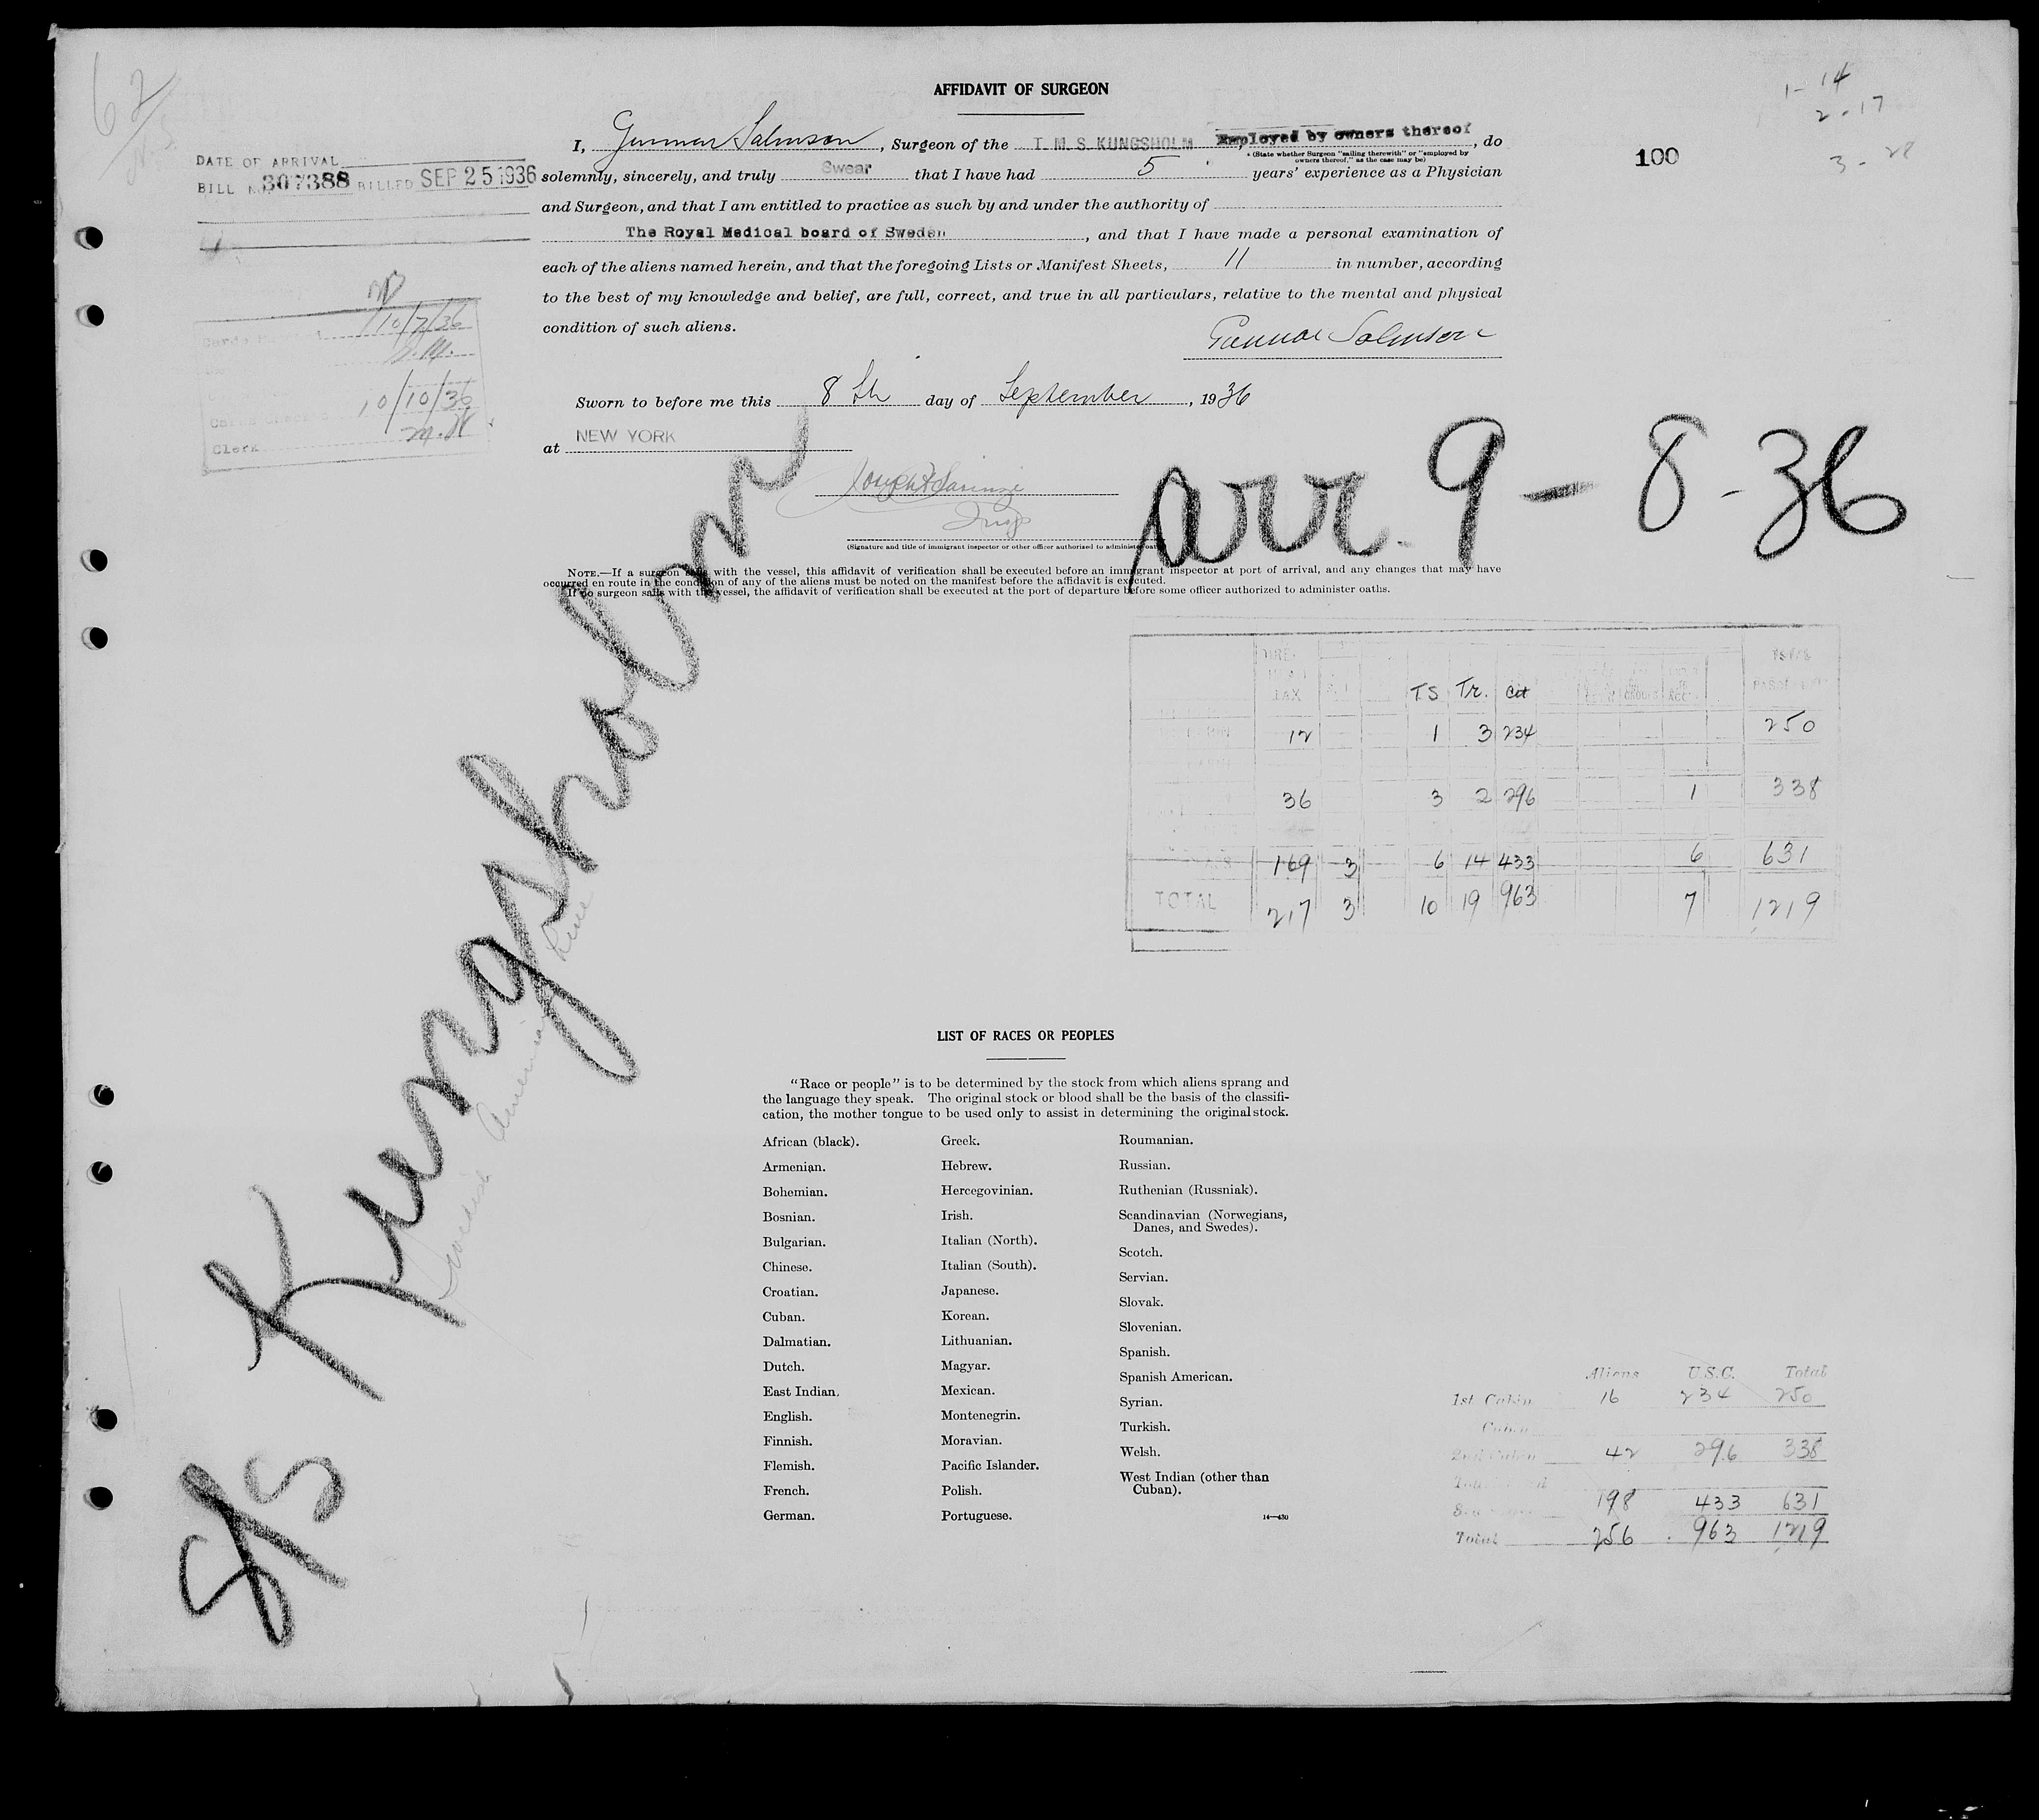 62
AFFIDAVIT OF SURGEON
1- 14
2-17
3-28
100
DATE OF ARRIVAL
BILL No. 307388 BILLED SEP 25 1936
I, Gunnar Salmson, Surgeon of the T. M. S. KUNGSHOLM, Employed by owners thereof, do
* (State whether Surgeon "sailing therewith" or "employed by
owners thereof," as the case may be)
solemnly, sincerely, and truly Swear that I have had 5 years' experience as a Physician
and Surgeon, and that I am entitled to practice as such by and under the authority of
The Royal Medical board of Sweden, and that I have made a personal examination of
each of the aliens named herein, and that the foregoing Lists or Manifest Sheets, 11 in number, according
to the best of my knowledge and belief, are full, correct, and true in all particulars, relative to the mental and physical
condition of such aliens.
Gunnar Salmson
10/7/36
10/10/36
Clerk
Sworn to before me this 8th day of September, 1936
at NEW YORK
Insp
(Signature and title of immigrant inspector or other officer authorized to administer oath)
arr. 9-8-36
NOTE.—If a surgeon sails with the vessel, this affidavit of verification shall be executed before an immigrant inspector at port of arrival, and any changes that may have
occurred en route in the condition of any of the aliens must be noted on the manifest before the affidavit is executed.
If no surgeon sails with the vessel, the affidavit of verification shall be executed at the port of departure before some officer authorized to administer oaths.
S/S Kungsholm
Swedish American Line
TAX TS Tr. Cit
12 1 3 234 250
36 3 2 296 1 338
169 3 6 14 433 6 631
TOTAL 217 3 10 19 963 7 1219
LIST OF RACES OR PEOPLES
"Race or people" is to be determined by the stock from which aliens sprang and
the language they speak. The original stock or blood shall be the basis of the classifi-
cation, the mother tongue to be used only to assist in determining the original stock.
African (black).
Armenian.
Bohemian.
Bosnian.
Bulgarian.
Chinese.
Croatian.
Cuban.
Dalmatian.
Dutch.
East Indian.
English.
Finnish.
Flemish.
French.
German.
Greek.
Hebrew.
Hercegovinian.
Irish.
Italian (North).
Italian (South).
Japanese.
Korean.
Lithuanian.
Magyar.
Mexican.
Montenegrin.
Moravian.
Pacific Islander.
Polish.
Portuguese.
Roumanian.
Russian.
Ruthenian (Russniak).
Scandinavian (Norwegians,
Danes, and Swedes).
Scotch.
Servian.
Slovak.
Slovenian.
Spanish.
Spanish American.
Syrian.
Turkish.
Welsh.
West Indian (other than
Cuban).
14—430
Aliens U.S.C. Total
1st Cabin 16 234 250
Cabin
2nd Cabin 42 296 338
198 433 631
Total 256 963 1219